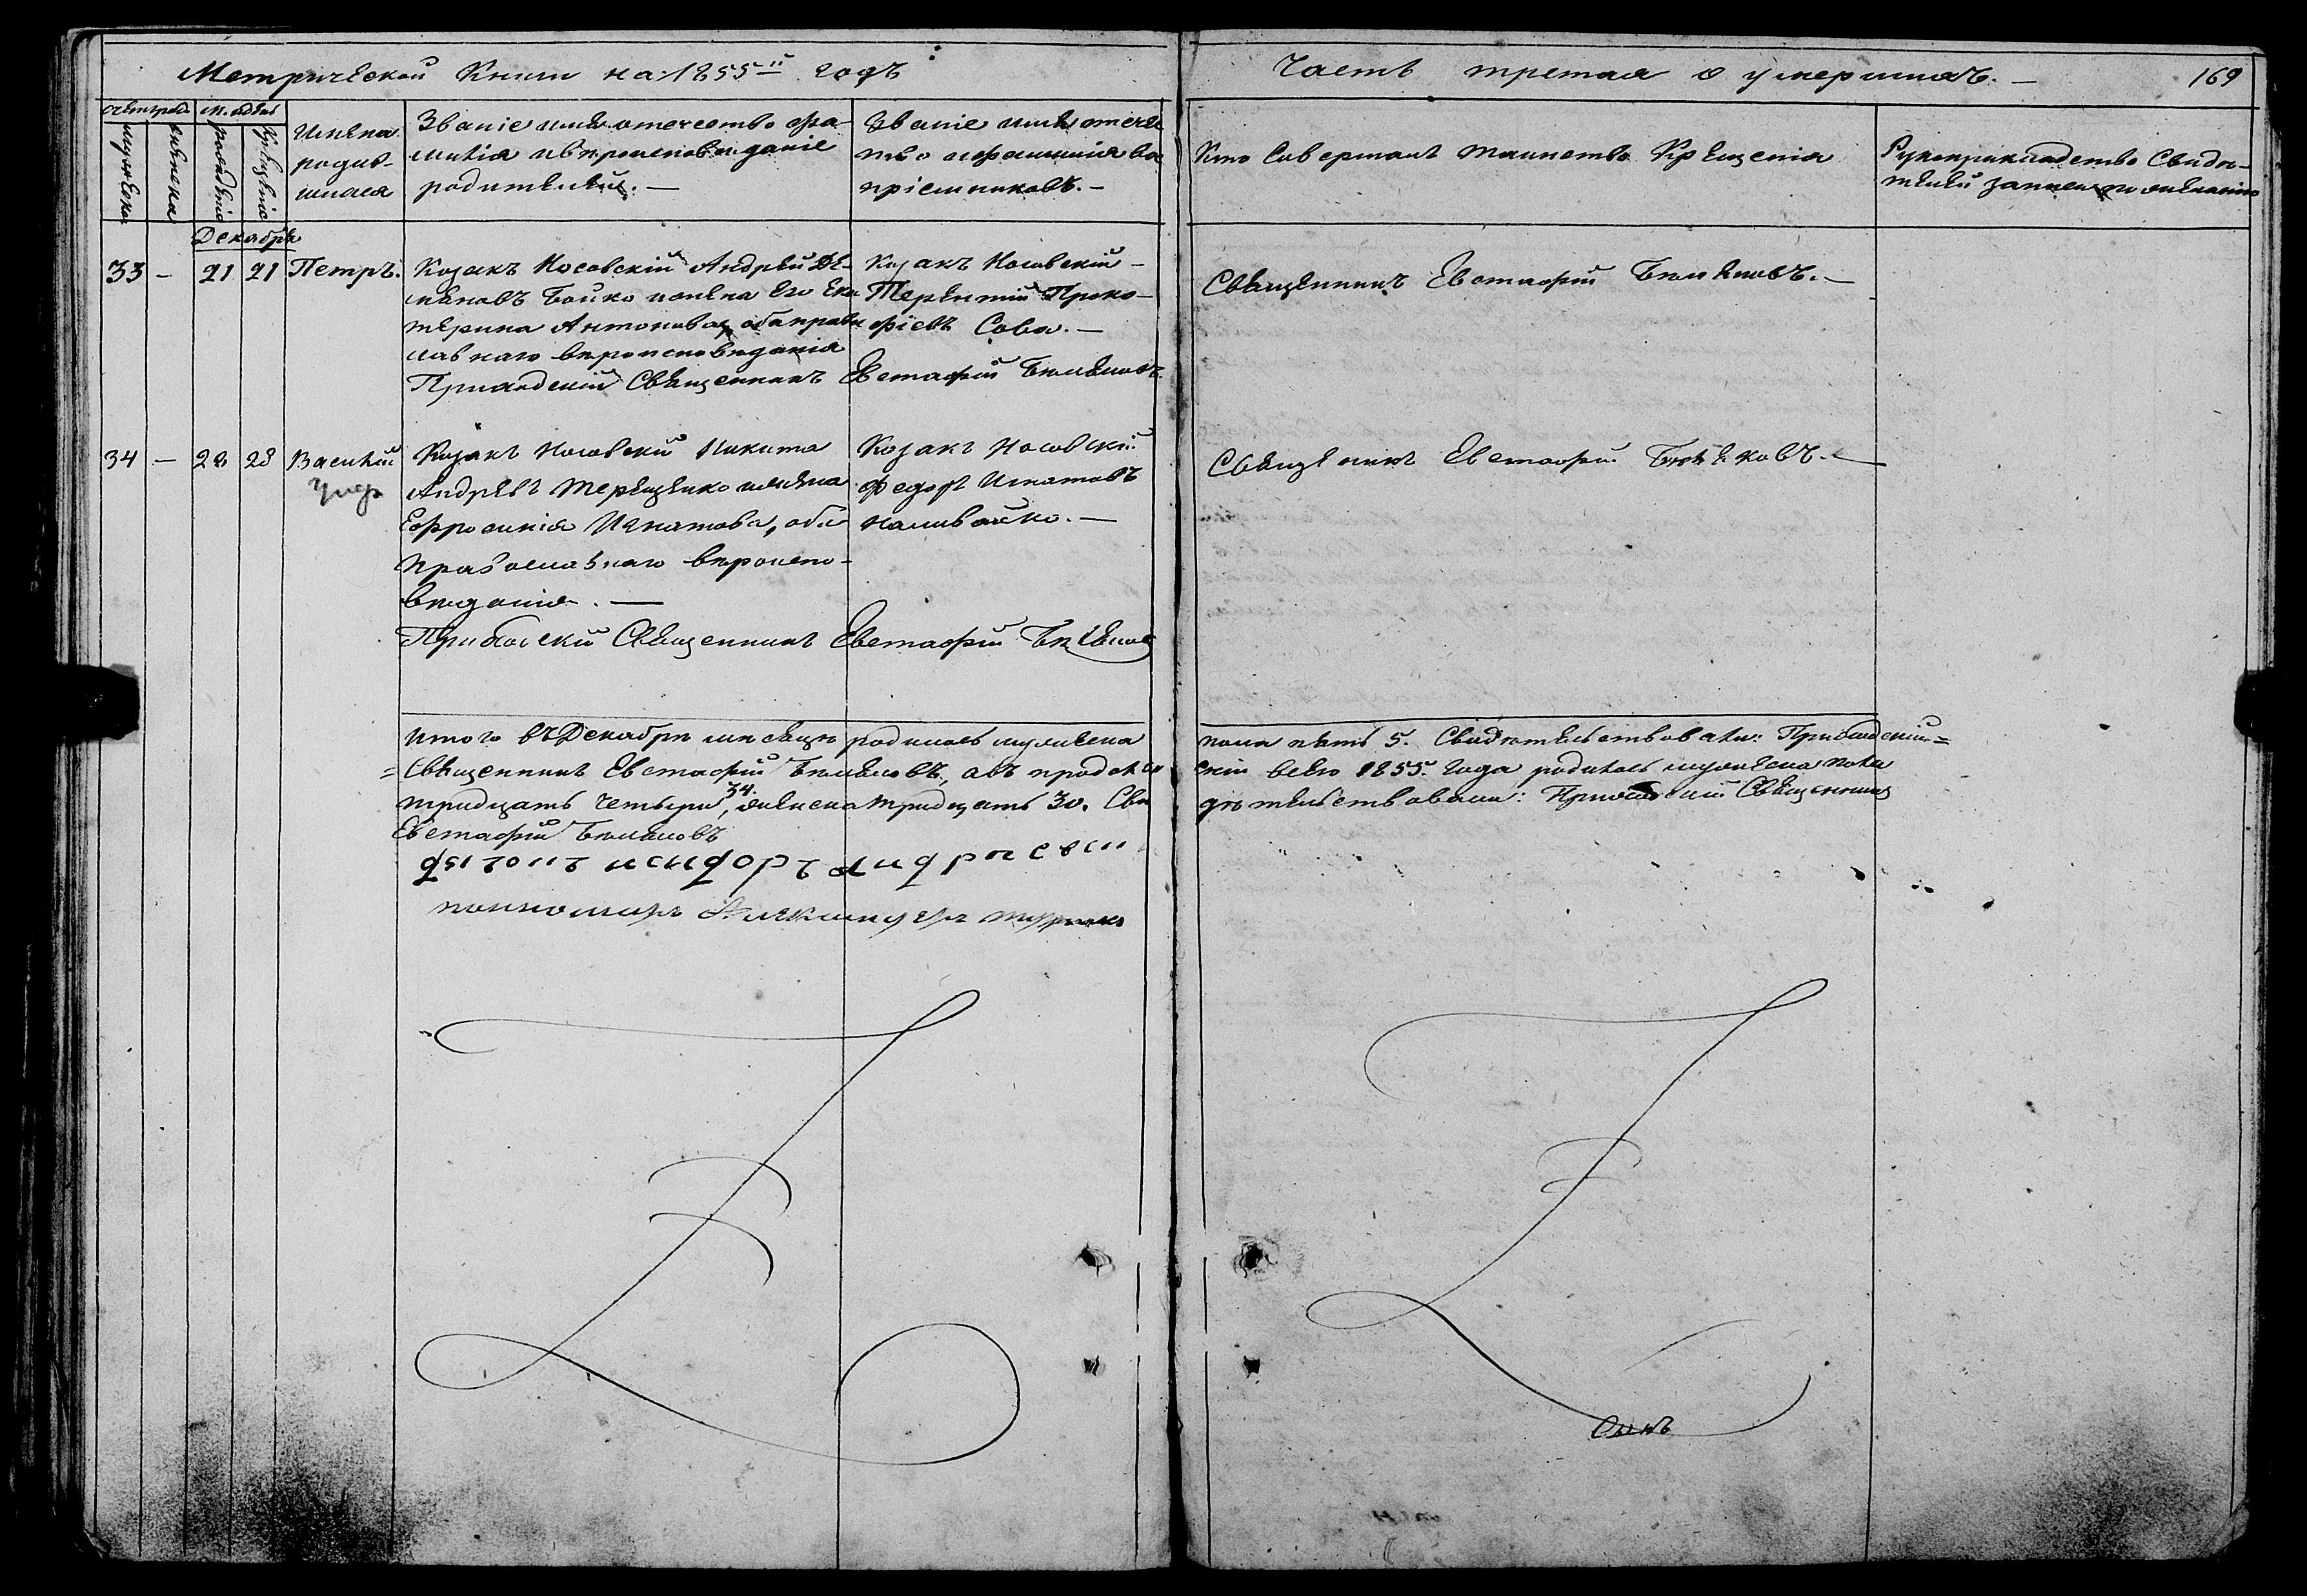 Метрической Книги на 1855й годъ
Часть третая о умершихъ.
169
счетъ род.
м. и день
мужеска
женска
рожденіе
крещеніе
Имена
родив-
шихся
Званіе имя отечество фа-
милія и вѣроисповѣданіе
родителей. —
Званіе имя отече
тво и фамилія во
пріемниковъ. —
Кто Совершалъ таинство Крещенія
Рукоприкладство Свидѣ-
телей записи по желанію
Декабрь
33 — 21 21 Петръ.
Козакъ Носовскій Андрей
Бойко и жена его Ека
терина Антонова, оба право
лавнаго вѣроисповѣданія
Приходскій Священникъ Евстафій
Козакъ Носовскій —
Терентій Проко-
фіевъ Сова. —
Священникъ Евстафій
34 — 28 28 Василій
умер
Козакъ Носовскій Никита
Андреевъ Терещенко и жена
Ефросинія Игнатова, оба
православнаго вѣроиспо-
вѣданія. —
Приходскій Священникъ Евстафій
Козакъ Носовскій
Федоръ Игнатовъ
Наливайко. —
Священникъ Евстафій
Итого въ Декабрѣ мѣсяцѣ родилось мужеска пола пять 5. Свидѣтельствовали: Приходскій =
= Священникъ Евстафій всего 1855. года родилось мужеска пола
тридцать четыри 34, женска тридцать 30. Сви дѣтельствовали: Приходскій Священникъ
Евстафій
дьяконъ исидоръ
пономаръ Александеръ
Сынъ